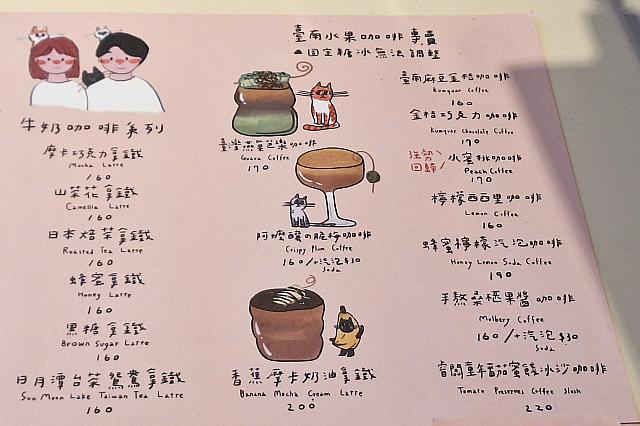 牛奶咖啡系列
摩卡巧克力拿鐵
Mocha Latte
160
山茶花拿鐵
Camellia Latte
160
日本焙茶拿鐵
Roasted Tea Latte
160
蜂蜜拿鐵
Honey Latte
160
黑糖拿鐵
Brown Sugar Latte
160
日月潭台茶鴛鴦拿鐵
Sun Moon Lake Taiwan Tea Latte
160
臺南水果咖啡專賣
固定糖冰無法調整
臺灣燕巢芭樂咖啡
Guava Coffee
170
阿嬤釀の脆梅咖啡
Crispy Plum Coffee
160/+汽泡$30
Soda
香蕉摩卡奶油拿鐵
Banana Mocha Cream Latte
200
臺南麻豆金桔咖啡
Kumquar Coffee
160
金桔巧克力咖啡
Kumquar Chocolate Coffee
170
強勢回歸
水蜜桃咖啡
Peach Coffee
170
檸檬西西里咖啡
Lemon Coffee
160
蜂蜜檸檬汽泡咖啡
Honey Lemon Soda Coffee
190
手熬桑椹果醬咖啡
Mulbery Coffee
160/+汽泡$30
Soda
番茄蜜餞冰沙咖啡
Tomato Preserves Coffee Slush
220